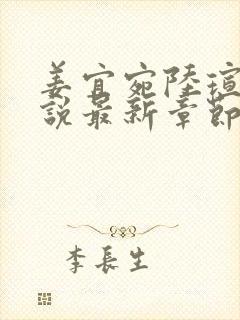 姜宜宛陸瑄
說最新章節
李長生